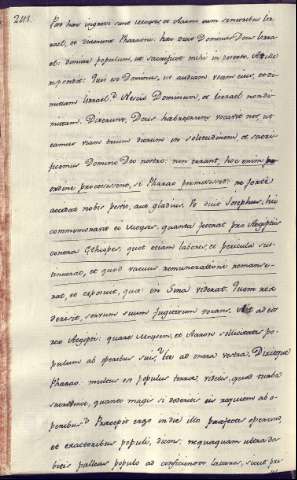 248.
Post haec ingressi sunt Moyses, et Aaron cum senioribus Is-
rael, et dixerunt Pharaoni: haec dicit Dominus Deus Isra-
el: dimitte populum, ut sacrificet mihi in deserto. At ille
respondit: Quis est Dominus, ut audiam vocem eius, et di-
mittam Israel? Nescio Dominum, et Israel non di-
mittam. Dixerunt, Deus Hebraeorum vocavit nos, ut
eamus viam trium dierum in solitudinem et sacri-
ficemus Domino Deo nostro:
ordine processissent, si Pharao permisisset: ne forte
accidat nobis pestis, aut gladius.
commemorasse et Moyses, quanta fecerat pro Aegyptiis
contra Ethiopes, quot etiam labores, et pericula sus-
tinuerat, et quod vacuus remunerationis remanse-
rat, et exposuit, quae in Sina viderat.
servum suum fugitivum vocans. Ait ad eos
rex Aegypti: quare Moyses, et Aaron sollicitatis po-
pulum ab operibus suis? Ite ad onera vestra. Dixitque
Pharao: multus est populus terrae, videtis, quod turba
succreverit, quanto magis si dederitis eis requiem ab o-
peribus? Praecepit ergo in die illo praefectis operum,
et exactoribus populi, dicens: nequaquam ultra da-
bitis paleas populo ad conficiendos lateres, sicut pri-